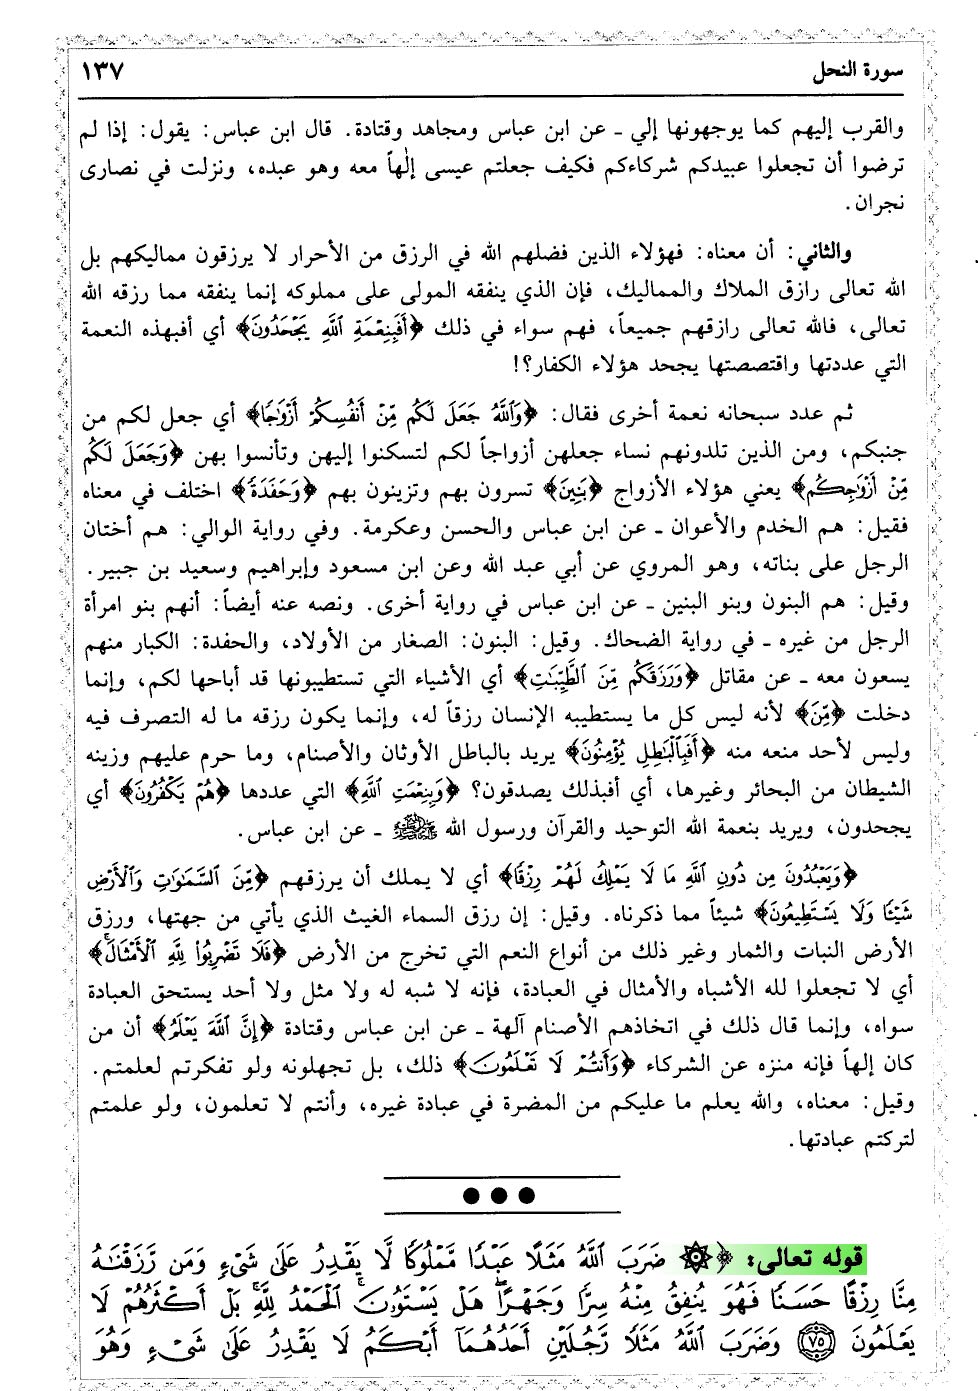 سورة النحل ١٣٧
والقرب إليهم كما يوجهونها إلي ـ عن ابن عباس ومجاهد وقتادة. قال ابن عباس: يقول: إذا لم
ترضوا أن تجعلوا عبيدكم شركاءكم فكيف جعلتم عيسى إلٰهاً معه وهو عبده، ونزلت في نصارى
نجران.
والثاني: أن معناه: فهؤلاء الذين فضلهم الله في الرزق من الأحرار لا يرزقون مماليكهم بل
الله تعالى رازق الملاك والمماليك، فإن الذي ينفقه المولى على مملوكه إنما ينفقه مما رزقه الله
تعالى، فالله تعالى رازقهم جميعاً، فهم سواء في ذلك ﴿أَفَبِنِعْمَةِ ٱللَّهِ يَجْحَدُونَ﴾ أي أفبهذه النعمة
التي عددتها واقتصصتها يجحد هؤلاء الكفار؟!
ثم عدد سبحانه نعمة أخرى فقال: ﴿وَٱللَّهُ جَعَلَ لَكُم مِّنْ أَنفُسِكُمْ أَزْوَٰجًا﴾ أي جعل لكم من
جنبكم، ومن الذين تلدونهم نساء جعلهن أزواجاً لكم لتسكنوا إليهن وتأنسوا بهن ﴿وَجَعَلَ لَكُم
مِّنْ أَزْوَٰجِكُم﴾ يعني هؤلاء الأزواج ﴿بَنِينَ﴾ تسرون بهم وتزينون بهم ﴿وَحَفَدَةً﴾ اختلف في معناه
فقيل: هم الخدم والأعوان ـ عن ابن عباس والحسن وعكرمة. وفي رواية الوالي: هم أختان
الرجل على بناته، وهو المروي عن أبي عبد الله وعن ابن مسعود وإبراهيم وسعيد بن جبير.
وقيل: هم البنون وبنو البنين ـ عن ابن عباس في رواية أخرى. ونصه عنه أيضاً: أنهم بنو امرأة
الرجل من غيره ـ في رواية الضحاك. وقيل: البنون: الصغار من الأولاد، والحفدة: الكبار منهم
يسعون معه ـ عن مقاتل ﴿وَرَزَقَكُم مِّنَ ٱلطَّيِّبَٰتِ﴾ أي الأشياء التي تستطيبونها قد أباحها لكم، وإنما
دخلت ﴿مِّنَ﴾ لأنه ليس كل ما يستطيبه الإنسان رزقاً له، وإنما يكون رزقه ما له التصرف فيه
وليس لأحد منعه منه ﴿أَفَبِٱلْبَٰطِلِ يُؤْمِنُونَ﴾ يريد بالباطل الأوثان والأصنام، وما حرم عليهم وزينه
الشيطان من البحائر وغيرها، أي أفبذلك يصدقون؟ ﴿وَبِنِعْمَتِ ٱللَّهِ﴾ التي عددها ﴿هُمْ يَكْفُرُونَ﴾ أي
يجحدون، ويريد بنعمة الله التوحيد والقرآن ورسول الله ﷺ ـ عن ابن عباس.
﴿وَيَعْبُدُونَ مِن دُونِ ٱللَّهِ مَا لَا يَمْلِكُ لَهُمْ رِزْقًا﴾ أي لا يملك أن يرزقهم ﴿مِّنَ ٱلسَّمَٰوَٰتِ وَٱلْأَرْضِ
شَيْـًٔا وَلَا يَسْتَطِيعُونَ﴾ شيئاً مما ذكرناه. وقيل: إن رزق السماء الغيث الذي يأتي من جهتها، ورزق
الأرض النبات والثمار وغير ذلك من أنواع النعم التي تخرج من الأرض ﴿فَلَا تَضْرِبُوا۟ لِلَّهِ ٱلْأَمْثَالَ﴾
أي لا تجعلوا لله الأشباه والأمثال في العبادة، فإنه لا شبه له ولا مثل ولا أحد يستحق العبادة
سواه، وإنما قال ذلك في اتخاذهم الأصنام آلهة ـ عن ابن عباس وقتادة ﴿إِنَّ ٱللَّهَ يَعْلَمُ﴾ أن من
كان إلهاً فإنه منزه عن الشركاء ﴿وَأَنتُمْ لَا تَعْلَمُونَ﴾ ذلك، بل تجهلونه ولو تفكرتم لعلمتم.
وقيل: معناه، والله يعلم ما عليكم من المضرة في عبادة غيره، وأنتم لا تعلمون، ولو علمتم
لتركتم عبادتها.
قوله تعالى: ﴿۞ ضَرَبَ ٱللَّهُ مَثَلًا عَبْدًا مَّمْلُوكًا لَّا يَقْدِرُ عَلَىٰ شَىْءٍ وَمَن رَّزَقْنَٰهُ
مِنَّا رِزْقًا حَسَنًا فَهُوَ يُنفِقُ مِنْهُ سِرًّا وَجَهْرًا ۖ هَلْ يَسْتَوُۥنَ ۚ ٱلْحَمْدُ لِلَّهِ ۚ بَلْ أَكْثَرُهُمْ لَا
يَعْلَمُونَ ﴿٧٥﴾ وَضَرَبَ ٱللَّهُ مَثَلًا رَّجُلَيْنِ أَحَدُهُمَآ أَبْكَمُ لَا يَقْدِرُ عَلَىٰ شَىْءٍ وَهُوَ